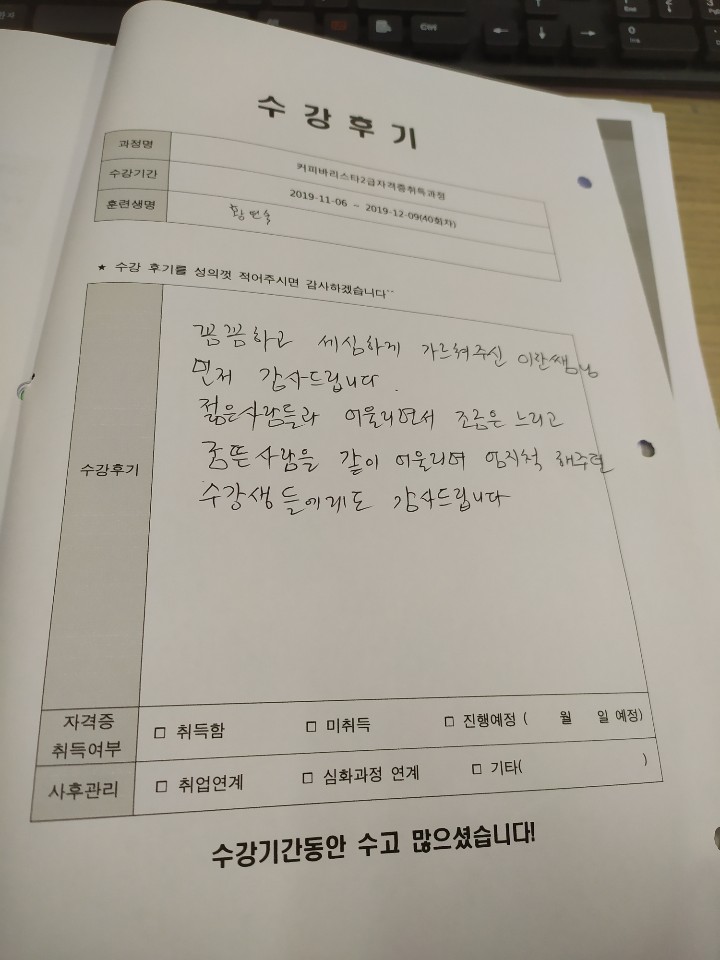 수 강 후 기
과정명
커피바리스타2급자격증취득과정
수강기간
2019-11-06 ~ 2019-12-09(40회차)
훈련생명
황 연숙
★ 수강 후기를 성의껏 적어주시면 감사하겠습니다^^
수강후기
꼼꼼하고 세심하게 가르쳐주신 이란쌤님
먼저 감사드립니다.
젊은사람들과 어울리면서 조금은 느리고
굼뜬 사람을 같이 어울리며 해주던
수강생 들에게도 감사드립니다
자격증
취득여부
□ 취득함 □ 미취득 □ 진행예정 ( 월 일 예정)
사후관리
□ 취업연계 □ 심화과정 연계 □ 기타( )
수강기간동안 수고 많으셨습니다!
Ctrl
← ↓ →
0
Ins